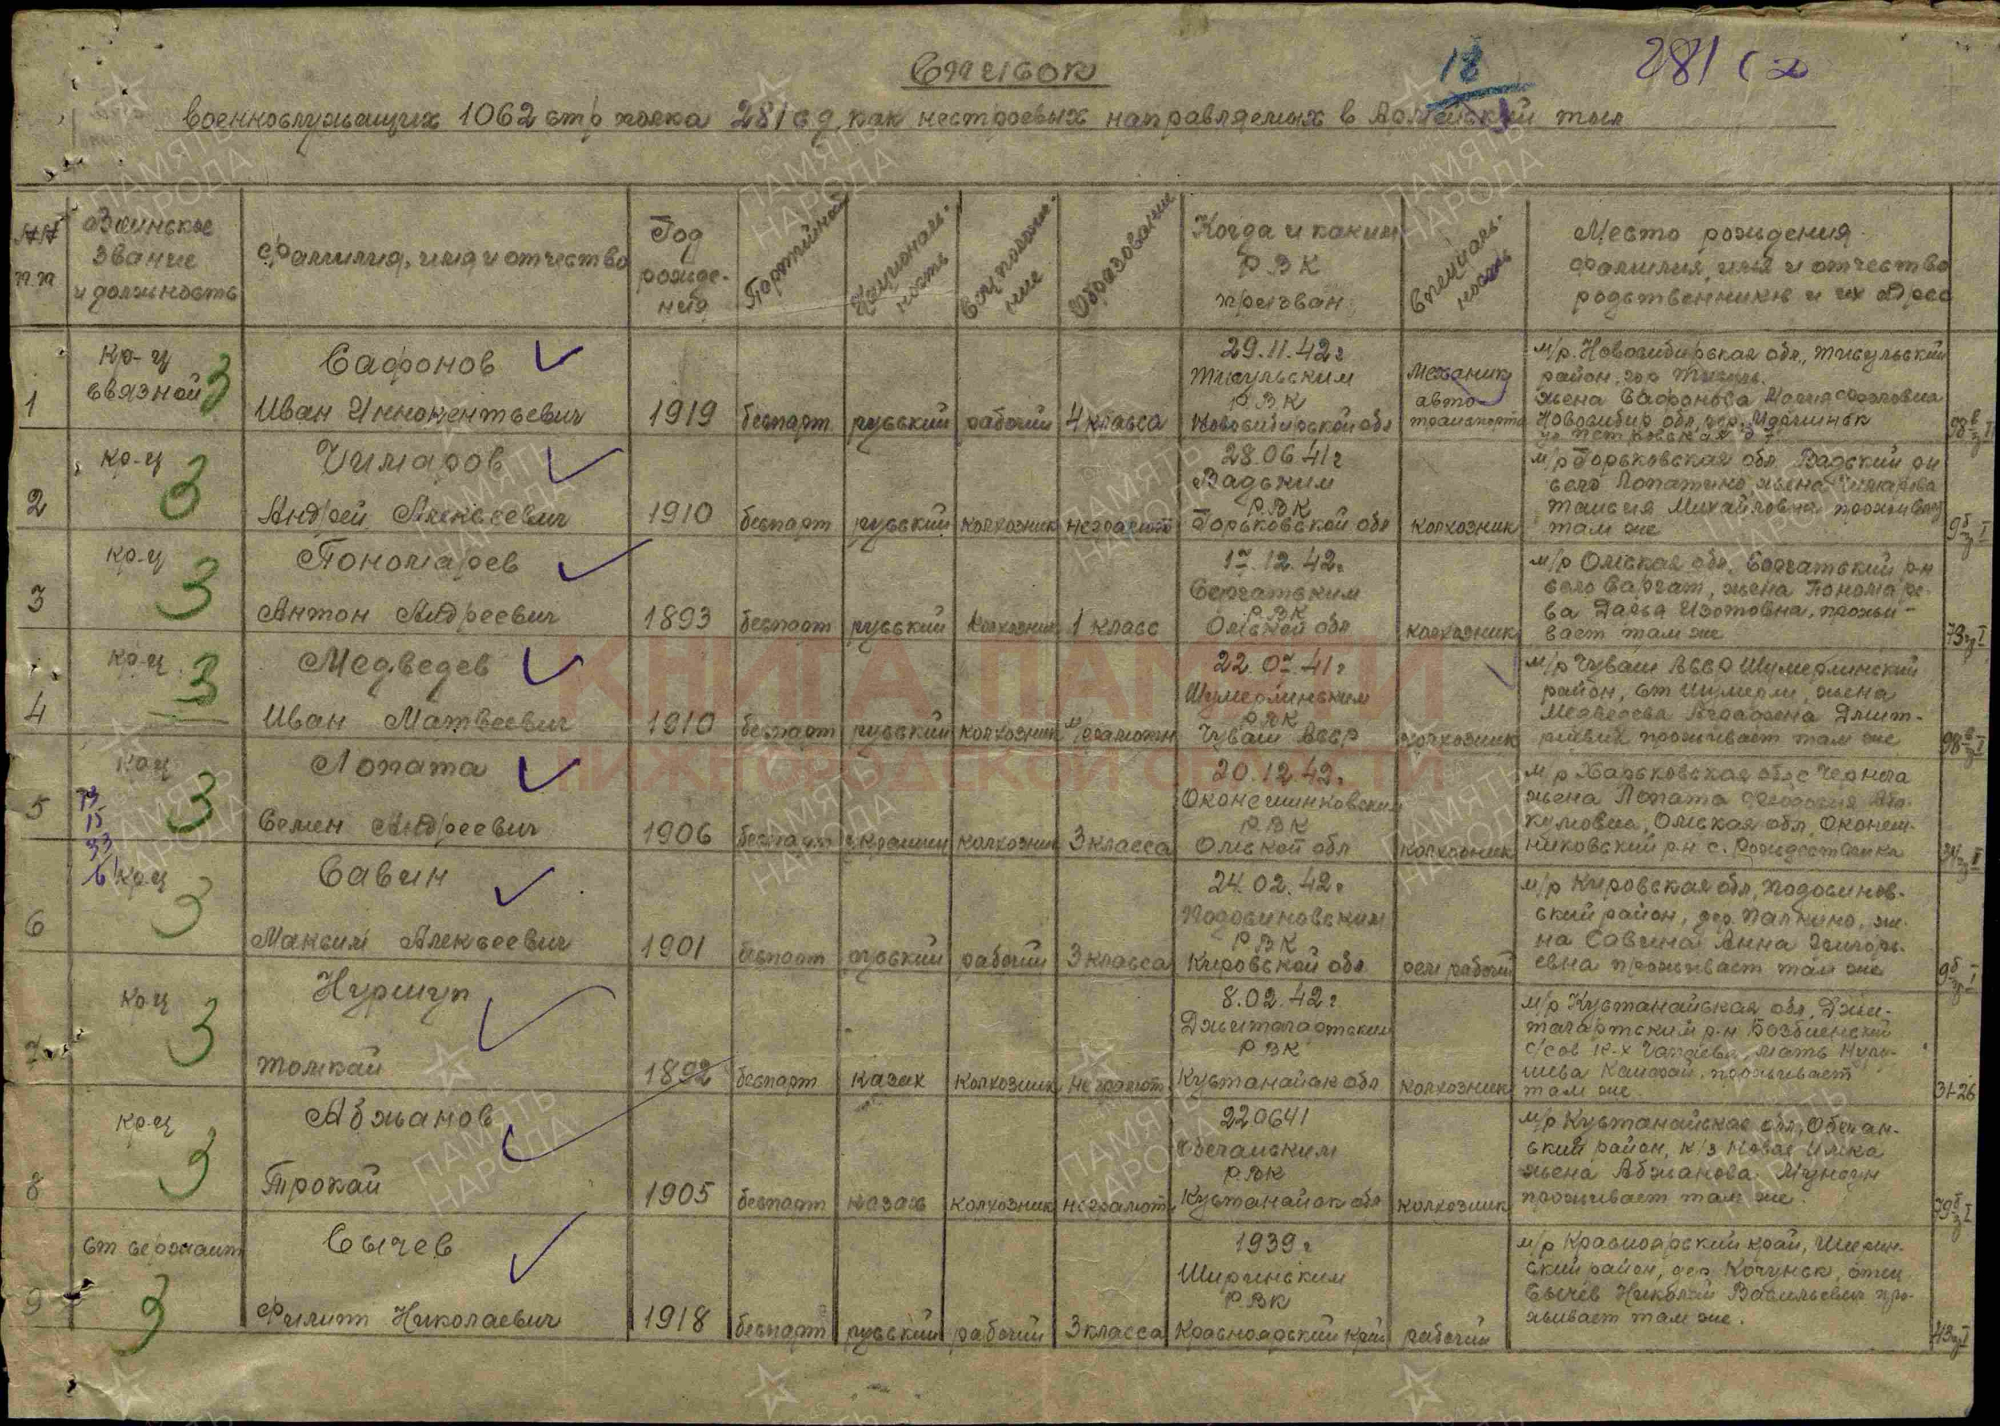 18
281 сд
Список
военнослужащих 1062 стр полка 281 сд, как нестроевых направляемых в Армейский тыл
№№ п.п
Воинское звание и должность
Фамилия, имя и отчество
Год рождения
Партийной
Националь-ность
Соцположе-ние
Образование
Когда и каким РВК призван
Специаль-ность
Место рождения фамилия, имя и отчество родственников и их адрес
1
кр-ц связной
3
Сафонов
Иван Иннокентьевич
1919
беспарт
русский
рабочий
4 класса
29.11.42г
Тисульским
РВК
Новосибирской обл
механик
авто-
транспорта
м/р. Новосибирская обл., Тисульский
район, гор Тисуль.
жена Сафонова Мария
Новосибир обл, гор.
2
кр-ц
3
Чимаров
Андрей Алексеевич
1910
беспарт
русский
колхозник
неграмот
28.06 41г
Вадским
РВК
Горьковской обл
колхозник
м/р Горьковская обл Вадский рн
село Лопатино жена Чимарова
Таисия Михайловна проживает
там же
3
кр-ц
3
Пономарев
Антон Андреевич
1893
беспарт
русский
колхозник
1 класс
17.12.42г
Саргатским
РВК
Омской обл
колхозник
м/р Омская обл, Саргатский р-н
село Саргат, жена Пономаре-
ва Дарья Изотовна, прожи-
вает там же
4
кр-ц
3
Медведев
Иван Матвеевич
1910
беспарт
русский
колхозник
м/грамотн
22.07.41г
Шумерлинским
РВК
Чуваш АССР
колхозник
м/р Чуваш АССР Шумерлинский
район, ст Шумерли, жена
Медведева Аграфена Дмит-
риевна проживает там же
5
кр-ц
3
Лопата
Семен Андреевич
1906
беспарт
украинец
колхозник
3 класса
20.12.42г
Оконешниковским
РВК
Омской обл
колхозник
м/р Харьковская обл с
жена Лопата Феодосия
Омская обл, Оконеш-
никовский р-н с.
6
кр-ц
3
Савин
Максим Алексеевич
1901
беспарт
русский
рабочий
3 класса
24.02.42г
Подосиновским
РВК
Кировской обл
рабочий
м/р Кировская обл, Подосинов-
ский район, дер. Палкино, же-
на Савина Анна Григорь-
евна проживает там же
7
кр-ц
3
Нуршуп
Толкай
1892
беспарт
казах
колхозник
неграмот
8.02.42г
Джитыгаринским
РВК
Кустанайск обл
колхозник
м/р Кустанайская обл,
с/сов к-х Чапаева, мать
проживает
там же
31-26
8
кр-ц
3
Абжанов
Трокай
1905
беспарт
казах
колхозник
неграмот
220641
РВК
Кустанайск обл
колхозник
м/р Кустанайская обл,
ский район, к/з Новая
жена Абжанова
проживает там же.
9
ст сержант
3
Сычев
Филипп Николаевич
1918
беспарт
русский
рабочий
3 класса
1939г
Ширинским
РВК
Красноярский край
рабочий
м/р Красноярский край, Ширин-
ский район, дер отец
Сычев Николай Васильевич про-
живает там же.
КНИГА ПАМЯТИ
НИЖЕГОРОДСКОЙ ОБЛАСТИ
ПАМЯТЬ НАРОДА